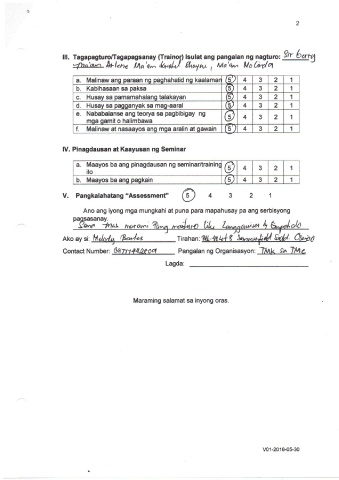 2
III. Tagapagturo/Tagapagsanay (Trainor) Isulat ang pangalan ng nagturo: Sir
Ma'am Arlene Ma'am
a. Malinaw ang paraan ng paghahatid ng kaalaman 5 4 3 2 1
b. Kabihasaan sa paksa 5 4 3 2 1
c. Husay sa pamamahalang talakayan 5 4 3 2 1
d. Husay sa pagganyak sa mag-aaral 5 4 3 2 1
e. Nababalanse ang teorya sa pagbibigay ng 5 4 3 2 1
mga gamit o halimbawa
f. Malinaw at nasaayos ang mga aralin at gawain 5 4 3 2 1
IV. Pinagdausan at Kaayusan ng Seminar
a. Maayos ba ang pinagdausan ng seminar/training 5 4 3 2 1
ito
b. Maayos ba ang pagkain 5 4 3 2 1
V. Pangkalahatang "Assessment" 5 4 3 2 1
Ano ang iyong mga mungkahi at puna para mapahusay pa ang serbisyong
pagsasanay.
Sana mas marami pang
Ako ay si Melody Tirahan:
Contact Number: Pangalan ng Organisasyon:
Lagda:
Maraming salamat sa inyong oras.
V01-2016-05-30